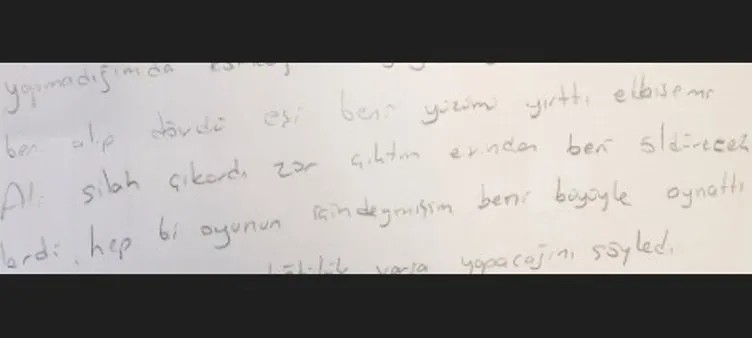 yapmadığımda
beni alıp dövdü eşi beni yüzümü yırttı elbisemi
Ali silah çıkardı zor çıktım evinden beni öldürecek
lerdi. hep bi oyunun içindeymişim beni büyüyle oynattı
kötülük varsa yapacağını söyledi